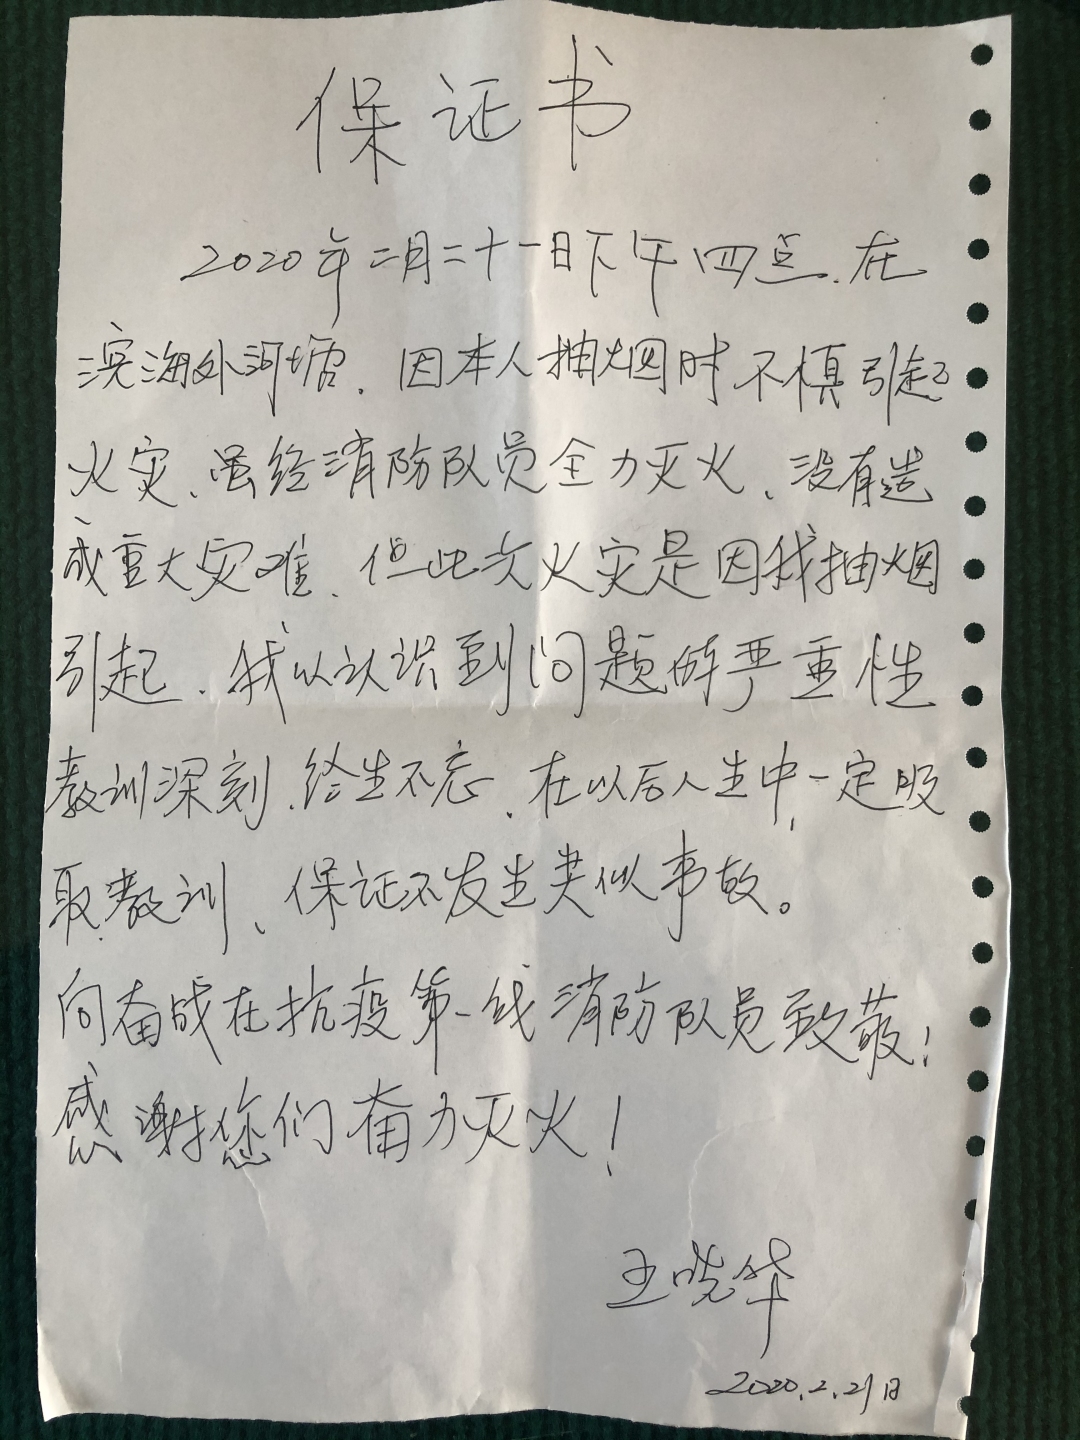 保证书
2020年二月二十一日下午四点.在
滨海外河塘.因本人抽烟时不慎引起
火灾、虽经消防队员全力灭火、没有造
成重大灾难.但此次火灾是因我抽烟
引起.我以认识到问题的严重性
教训深刻.终生不忘.在以后人生中,一定服
取教训、保证不发生类似事故。
向奋战在抗疫第一线消防队员致敬!
感谢您们奋力灭火!
王晓华
2020.2.21日